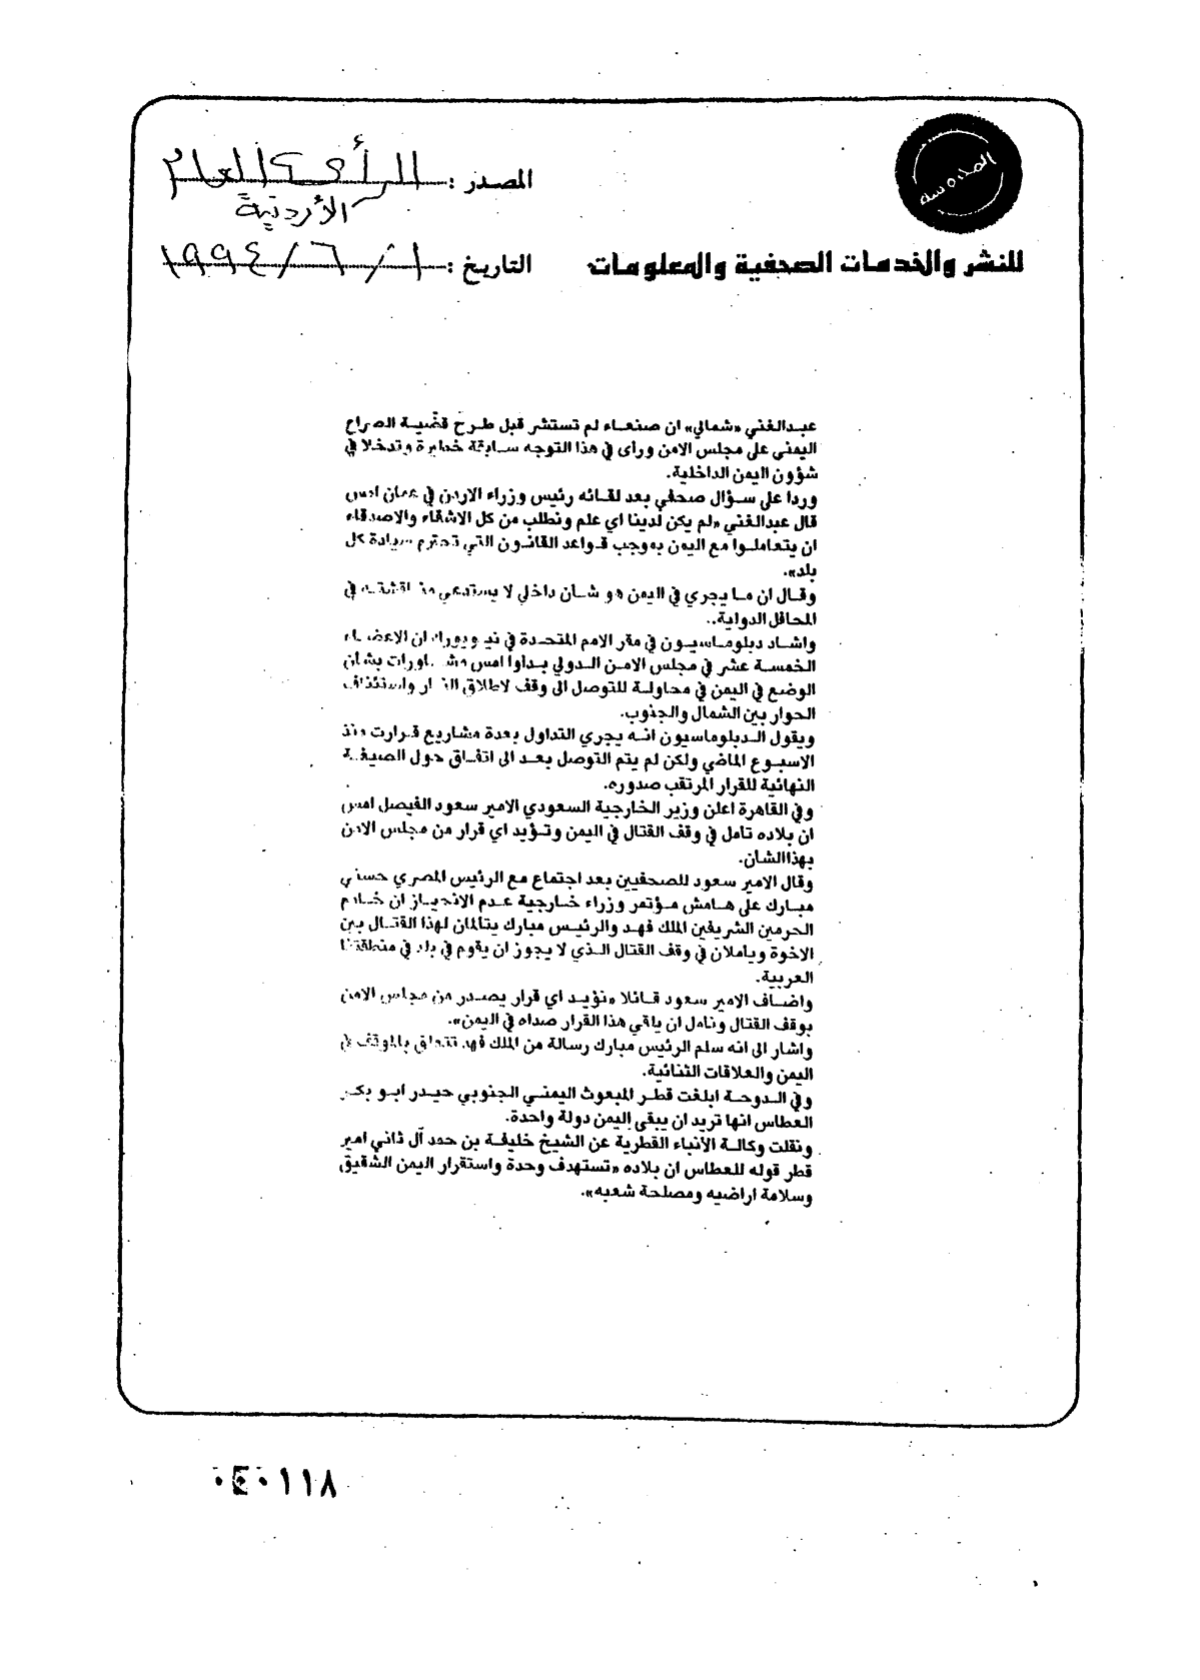 المصدر : الرأي العام
الأردنية
التاريخ : ١ / ٦ / ١٩٩٤
للنشر والخدمات الصحفية والمعلومات
عبدالغني «شمالي» ان صنعاء لم تستشر قبل طرح قضية الصراع
اليمني على مجلس الامن ورأى في هذا التوجه سابقة خطيرة وتدخلا في
شؤون اليمن الداخلية.
وردا على سؤال صحفي بعد لقائه رئيس وزراء الاردن في عمان امس
قال عبدالغني «لم يكن لدينا اي علم ونطلب من كل الاشقاء والاصدقاء
ان يتعاملوا مع اليمن بموجب قواعد القانون التي تحترم سيادة كل
بلد».
وقال ان ما يجري في اليمن هو شأن داخلي لا يستدعي مناقشته في
المحافل الدولية..
واشاد دبلوماسيون في مقر الامم المتحدة في نيويورك ان الاعضاء
الخمسة عشر في مجلس الامن الدولي بداوا امس مشاورات بشان
الوضع في اليمن في محاولة للتوصل الى وقف لاطلاق النار واستئناف
الحوار بين الشمال والجنوب.
ويقول الدبلوماسيون انه يجري التداول بعدة مشاريع قرارت منذ
الاسبوع الماضي ولكن لم يتم التوصل بعد الى اتفاق حول الصيغة
النهائية للقرار المرتقب صدوره.
وفي القاهرة اعلن وزير الخارجية السعودي الامير سعود الفيصل امس
ان بلاده تامل في وقف القتال في اليمن وتؤيد اي قرار من مجلس الامن
بهذا الشان.
وقال الامير سعود للصحفيين بعد اجتماع مع الرئيس المصري حسني
مبارك على هامش مؤتمر وزراء خارجية عدم الانحياز ان خادم
الحرمين الشريفين الملك فهد والرئيس مبارك يتالمان لهذا القتال بين
الاخوة ويأملان في وقف القتال الذي لا يجوز ان يقوم في بلد في منطقتنا
العربية.
واضاف الامير سعود قائلا «نؤيد اي قرار يصدر من مجلس الامن
بوقف القتال ونامل ان يلقي هذا القرار صداه في اليمن».
واشار الى انه سلم الرئيس مبارك رسالة من الملك فهد تتعلق بالموقف في
اليمن والعلاقات الثنائية.
وفي الدوحة ابلغت قطر المبعوث اليمني الجنوبي حيدر ابو بكر
العطاس انها تريد ان يبقى اليمن دولة واحدة.
ونقلت وكالة الأنباء القطرية عن الشيخ خليفة بن حمد آل ثاني امير
قطر قوله للعطاس ان بلاده «تستهدف وحدة واستقرار اليمن الشقيق
وسلامة اراضيه ومصلحة شعبه».
٠٤٠١١٨